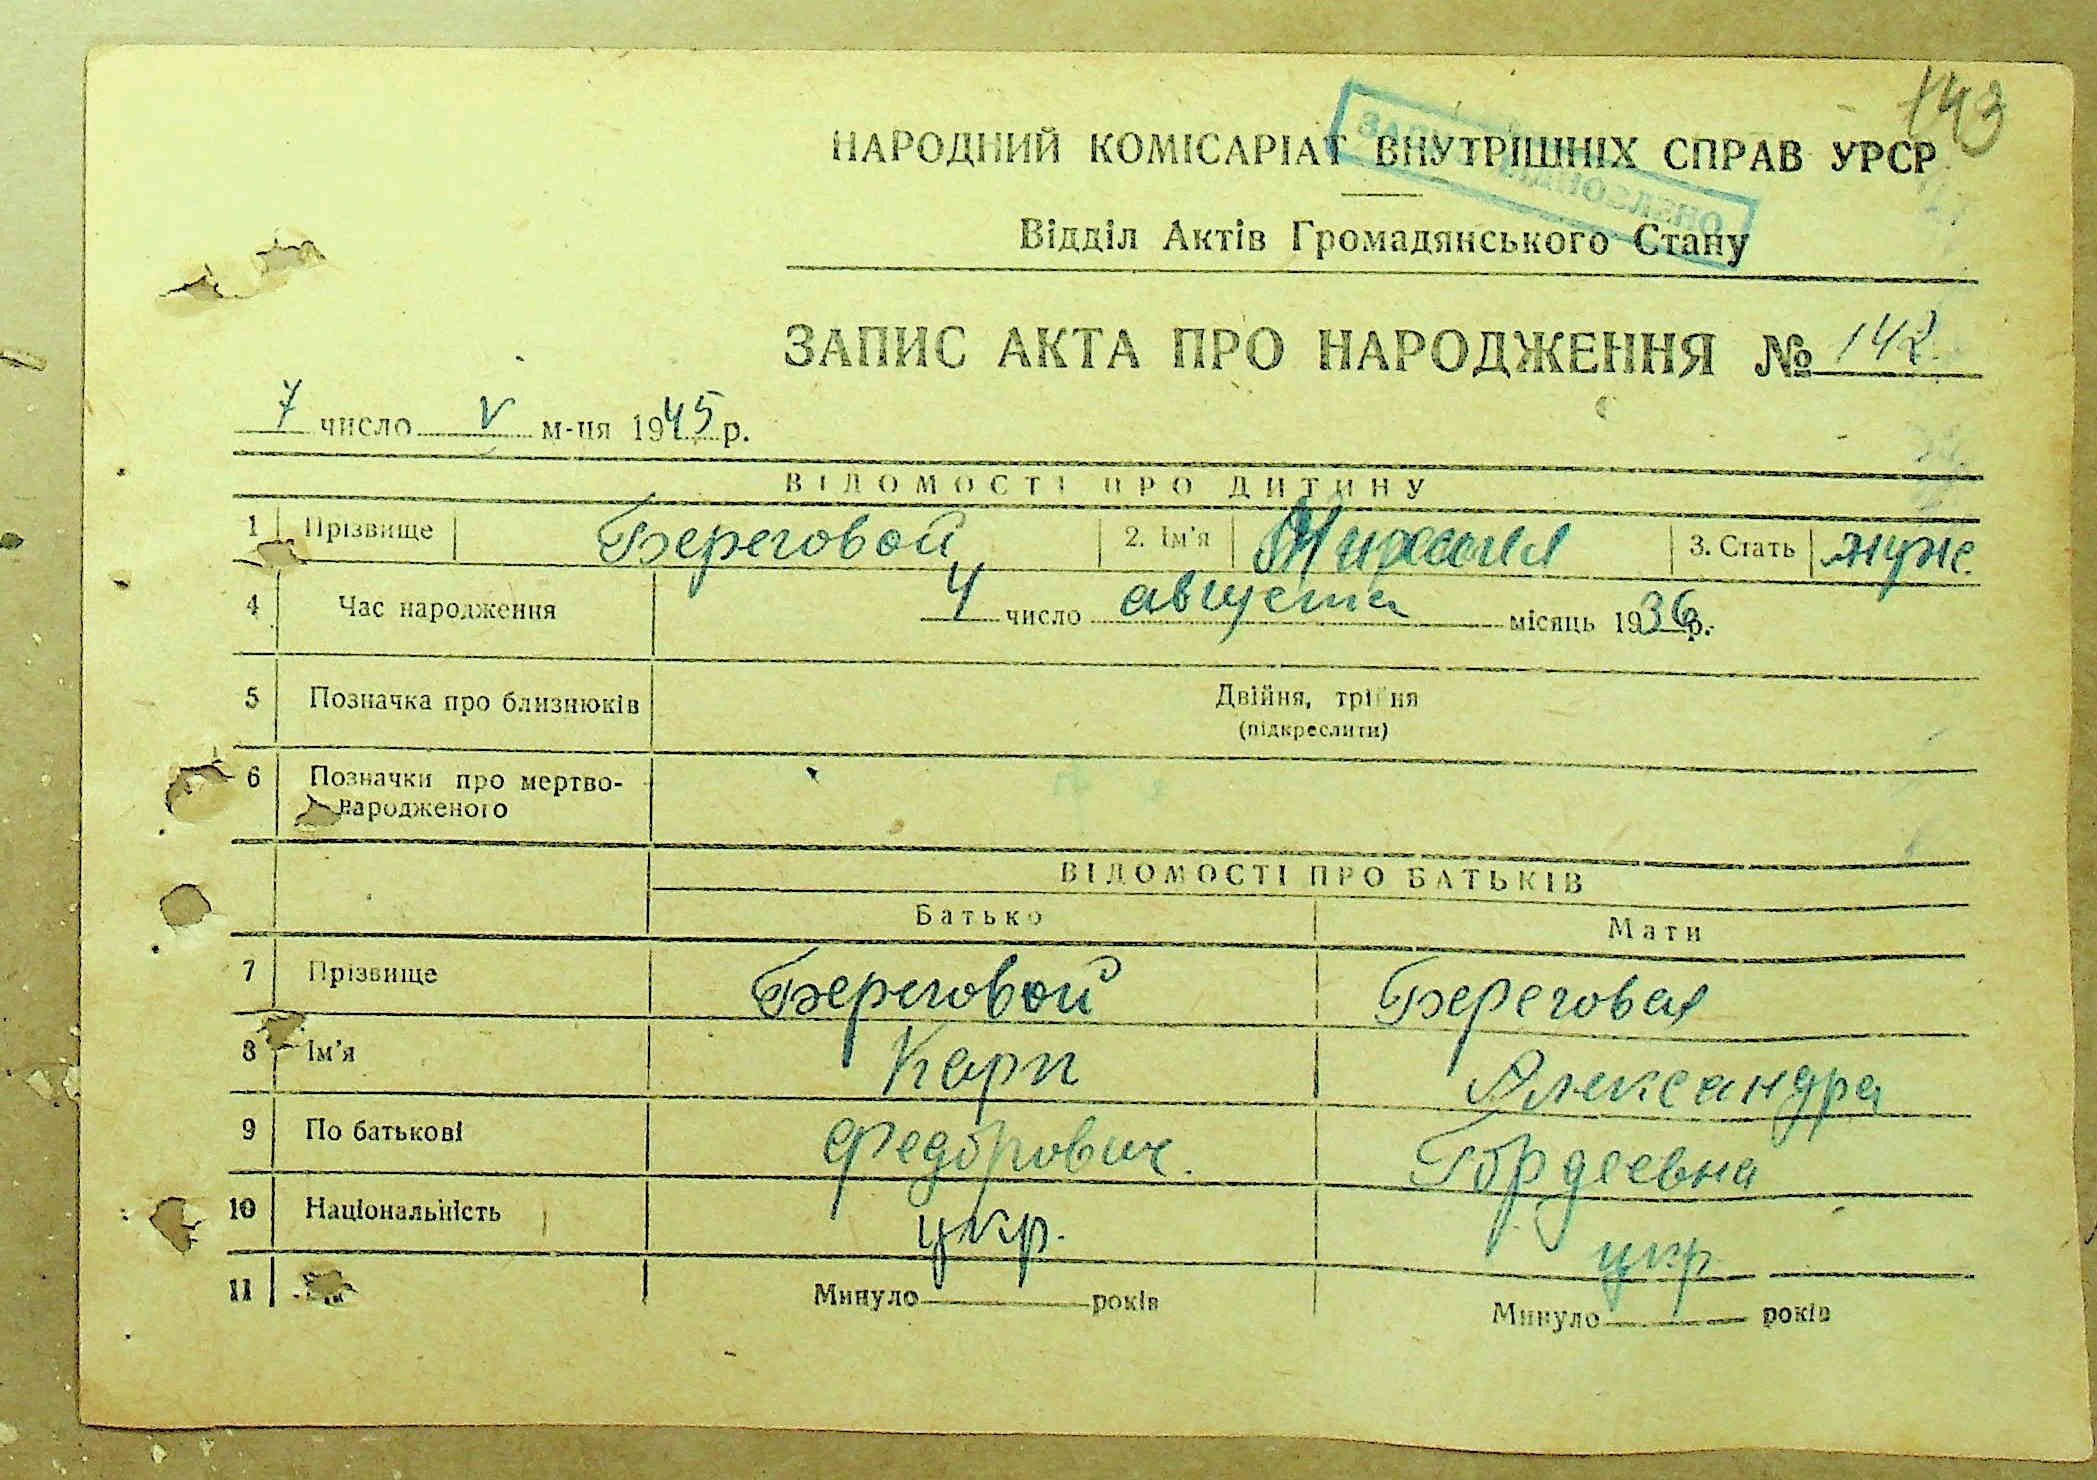 143
НАРОДНИЙ КОМІСАРІАТ ВНУТРІШНІХ СПРАВ УРСР
Відділ Актів Громадянського Стану
ЗАПИС АКТА ПРО НАРОДЖЕННЯ № 142
7 число V м-ця 1945 р.
ВІДОМОСТІ ПРО ДИТИНУ
1 Прізвище Береговой 2. Ім'я Михаил 3. Стать муж.
4 Час народження 4 число августа місяць 1936 р.
5 Позначка про близнюків Двійня, трійня
(підкреслити)
6 Позначки про мертво-
народженого
ВІДОМОСТІ ПРО БАТЬКІВ
Батько Мати
7 Прізвище Береговой Береговая
8 Ім'я Карп Александра
9 По батькові Федорович. Гордеевна
10 Національність укр. укр.
11 Минуло років Минуло років